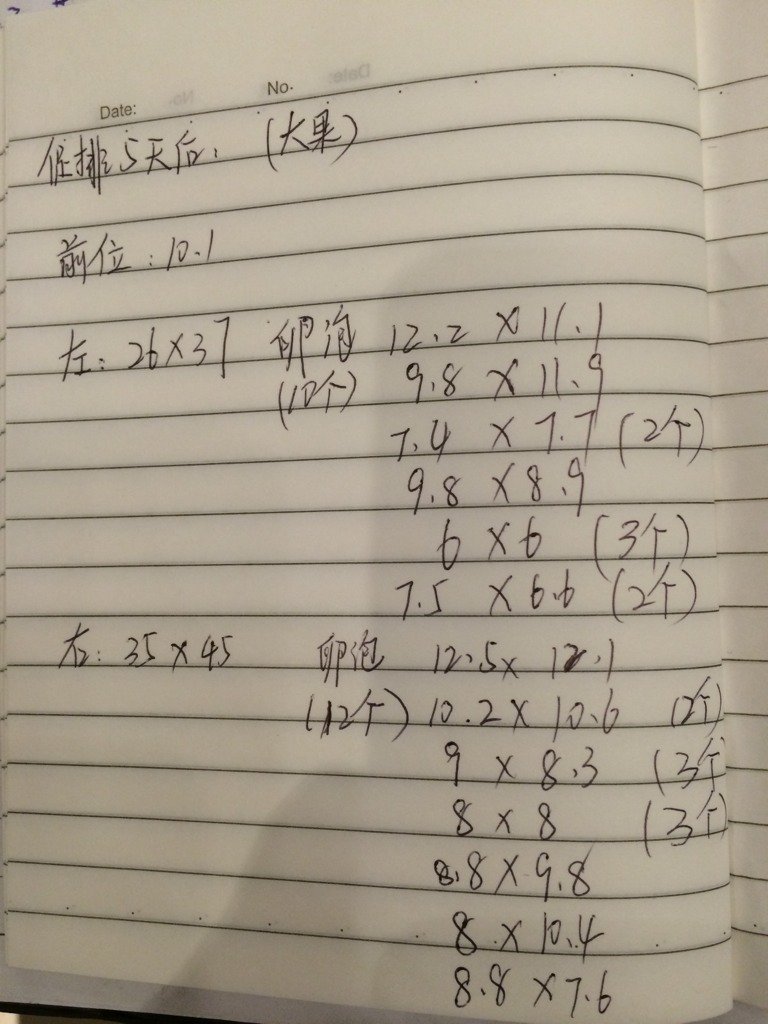 No.
Date:
促排5天后, (大果)
前位:10.1
左:26×37 卵泡 12.2 × 11.1
(10个) 9.8 × 11.9
7.4 × 7.7 (2个)
9.8 × 8.9
6 × 6 (3个)
7.5 × 6.6 (2个)
右:35×45 卵泡 12.5× 12.1
(12个) 10.2 × 10.6 (2个)
9 × 8.3 (3个
8 × 8 (3个)
8.8 × 9.8
8 × 10.4
8.8 × 7.6